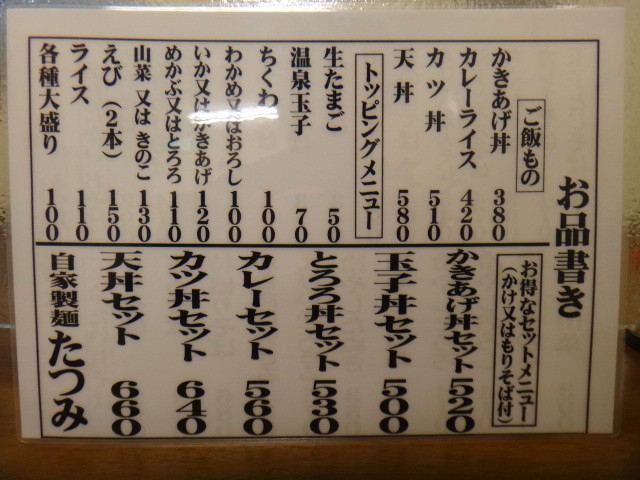 お品書き
ご飯もの
かきあげ丼 380
カレーライス 420
カツ丼 510
天丼 580
トッピングメニュー
生たまご 50
温泉玉子 70
ちくわ 100
わかめ又はおろし 100
いか又はかきあげ 120
めかぶ又はとろろ 110
山菜又はきのこ 130
えび(2本) 150
ライス 110
各種大盛り 100
お得なセットメニュー
(かけ又はもりそば付)
かきあげ丼セット 520
玉子丼セット 500
とろろ丼セット 530
カレーセット 560
カツ丼セット 640
天丼セット 660
自家製麺 たつみ